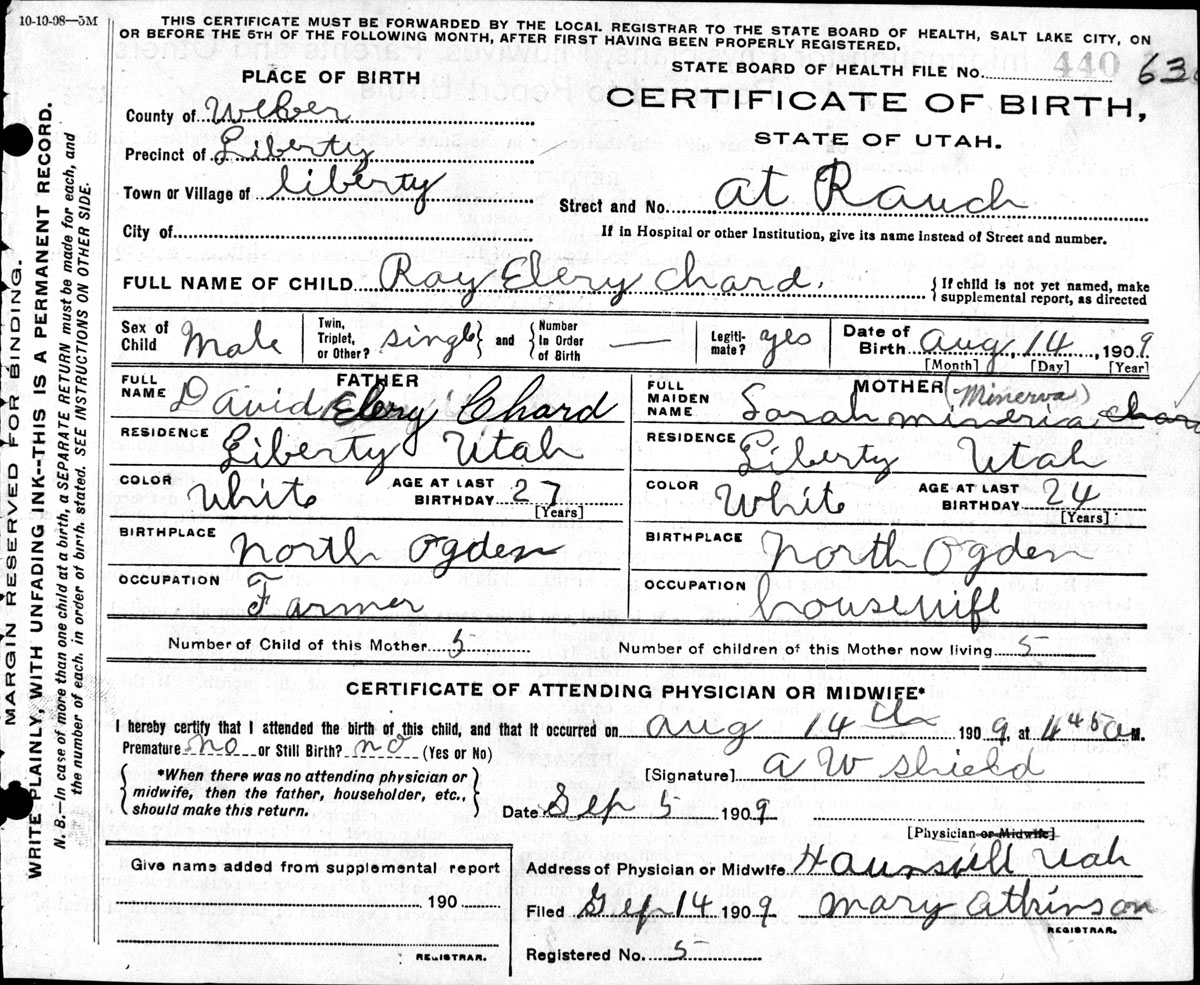 10-10-08—5M
THIS CERTIFICATE MUST BE FORWARDED BY THE LOCAL REGISTRAR TO THE STATE BOARD OF HEALTH, SALT LAKE CITY, ON
OR BEFORE THE 5TH OF THE FOLLOWING MONTH, AFTER FIRST HAVING BEEN PROPERLY REGISTERED.
MARGIN RESERVED FOR BINDING.
WRITE PLAINLY, WITH UNFADING INK--THIS IS A PERMANENT RECORD.
N. B.—In case of more than one child at a birth, a SEPARATE RETURN must be made for each, and
the number of each, in order of birth, stated. SEE INSTRUCTIONS ON OTHER SIDE.
PLACE OF BIRTH
County of Weber
Precinct of Liberty
Town or Village of liberty
City of
STATE BOARD OF HEALTH FILE NO. 440
CERTIFICATE OF BIRTH,
STATE OF UTAH.
Street and No. at Rauch
If in Hospital or other Institution, give its name instead of Street and number.
FULL NAME OF CHILD Ray Elery Chard. { If child is not yet named, make
supplemental report, as directed
Sex of Child Male Twin, Triplet, or Other? single and Number In Order of Birth — Legiti- mate? yes Date of Birth Aug, 14, 1909
[Month] [Day] [Year]
FATHER
FULL NAME David Elery Chard
RESIDENCE Liberty Utah
COLOR White AGE AT LAST BIRTHDAY 27
[Years]
BIRTHPLACE North Ogden
OCCUPATION Farmer
MOTHER (Minerva)
FULL MAIDEN NAME Sarah mineria Chard
RESIDENCE Liberty Utah
COLOR White AGE AT LAST BIRTHDAY 24
[Years]
BIRTHPLACE North Ogden
OCCUPATION housewife
Number of Child of this Mother 5 Number of children of this Mother now living 5
CERTIFICATE OF ATTENDING PHYSICIAN OR MIDWIFE*
I hereby certify that I attended the birth of this child, and that it occurred on aug 14th 1909, at 445 a M.
Premature no or Still Birth? no (Yes or No)
{ *When there was no attending physician or
midwife, then the father, householder, etc.,
should make this return. }
[Signature] A W Shield
Date Sep 5 1909
[Physician or Midwife]
Give name added from supplemental report
190
REGISTRAR.
Address of Physician or Midwife
Filed Sep 14 1909 Mary Atkinson
REGISTRAR.
Registered No. 5